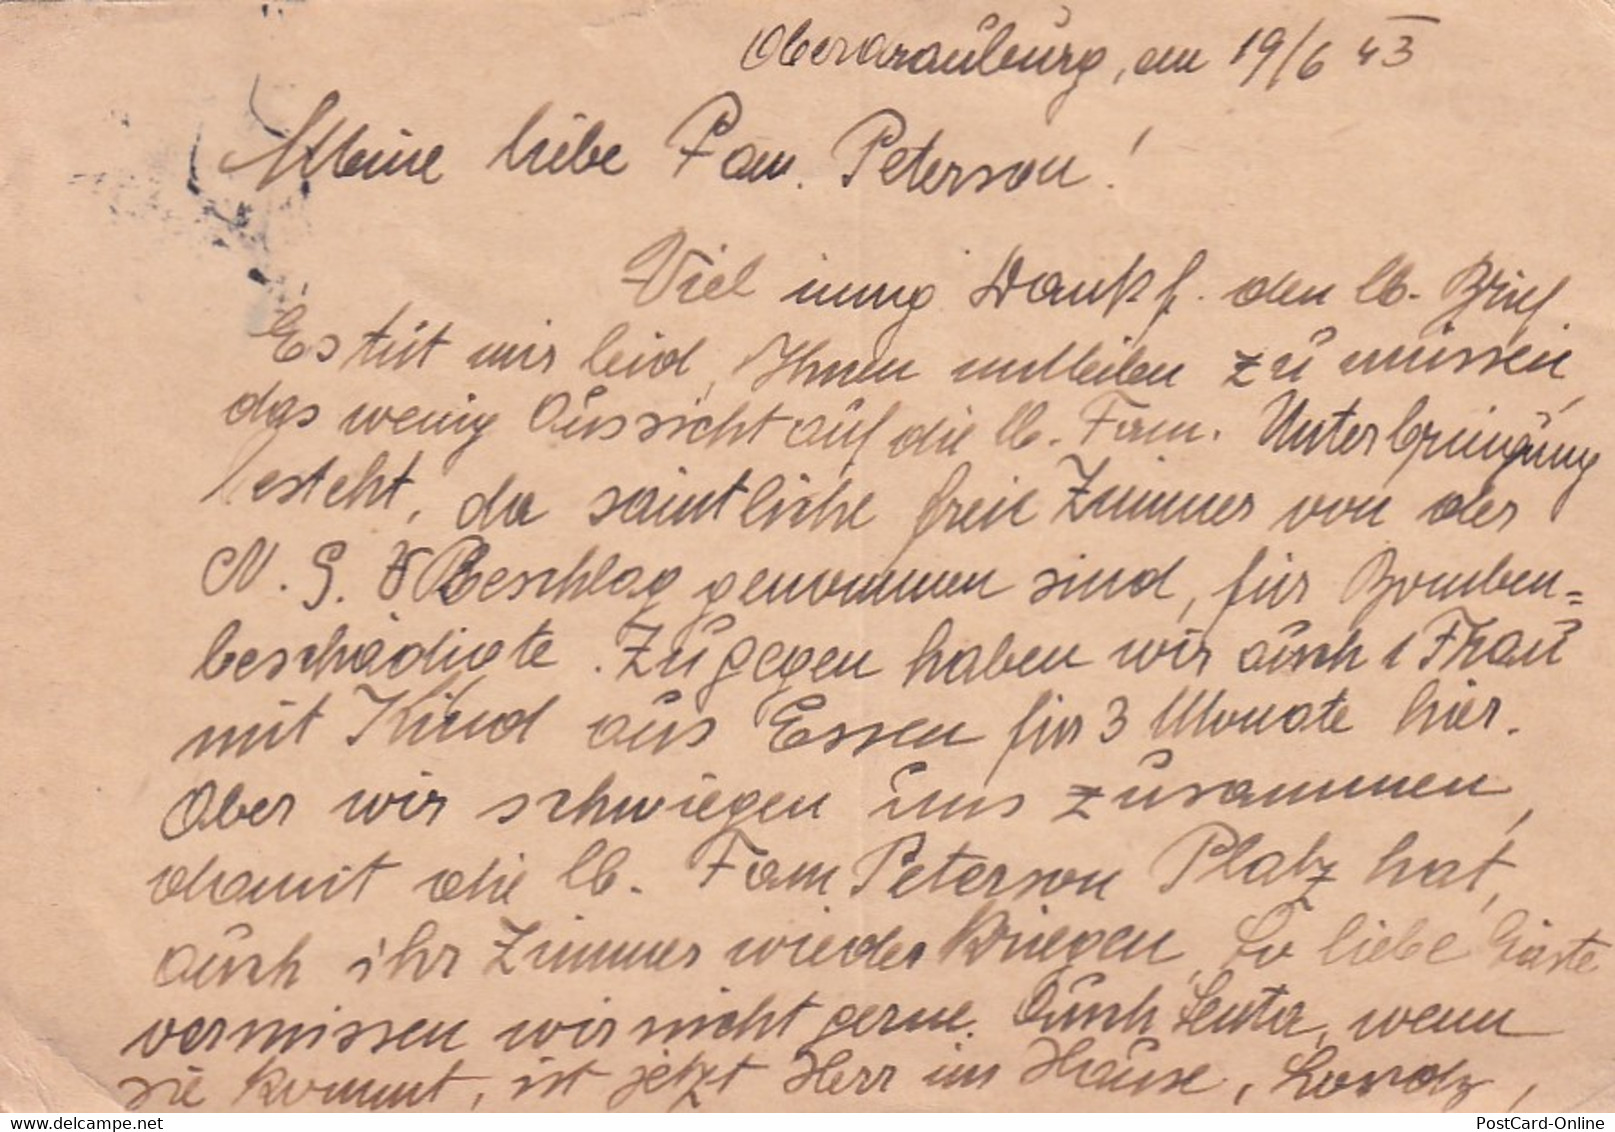 Oberdrauburg, am 19/6 43
Meine liebe Fam. Peterson!
Viel innig. Dank f. den lb. Brief.
Es tut mir leid, Ihnen mitteilen zu müssen,
das wenig Aussicht auf die lb. Fam. Unterbringung
besteht, da sämtliche freie Zimmer von der
N. S. V Beschlag genommen sind, für Bomben=
beschädigte. Zugegen haben wir auch 1 Frau
mit Kind aus Essen für 3 Monate hier.
Aber wir schwiegen uns zusammen,
damit die lb. Fam. Peterson Platz hat,
auch ihr Zimmer wieder kriegen. So liebe Gäste
vermissen wir nicht gerne. Auch Senta, wenn
sie kommt, ist jetzt Herr im Hause,
PostCard-Online